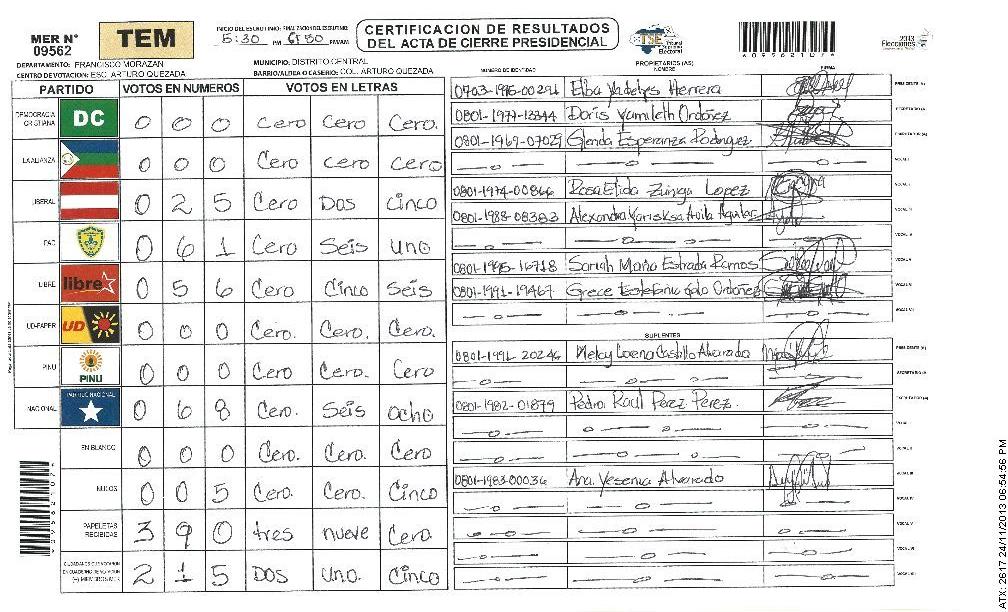 MER N° 09562
TEM
INICIO DEL ESCRUTINIO: FINALIZACION DEL ESCRUTINIO:
5:30 PM 6:50 PM/AM
CERTIFICACION DE RESULTADOS
DEL ACTA DE CIERRE PRESIDENCIAL
TSE
Tribunal Supremo Electoral
2013
Elecciones
DEPARTAMENTO: FRANCISCO MORAZAN
MUNICIPIO: DISTRITO CENTRAL
CENTRO DE VOTACION: ESC. ARTURO QUEZADA
BARRIO/ALDEA O CASERIO: COL. ARTURO QUEZADA
PARTIDO VOTOS EN NUMEROS VOTOS EN LETRAS
DEMOCRACIA CRISTIANA DC 0 0 0 Cero Cero Cero.
LA ALIANZA 0 0 0 Cero cero cero
LIBERAL 0 2 5 Cero Dos Cinco
PAC 0 6 1 Cero Seis uno
LIBRE libre 0 5 6 Cero Cinco Seis
UD-FAPER UD 0 0 0 Cero. Cero. Cero.
PINU PINU 0 0 0 Cero Cero. Cero
NACIONAL PARTIDO NACIONAL 0 6 8 Cero. Seis ocho
EN BLANCO 0 0 0 Cero. Cero. Cero
NULOS 0 0 5 Cero. Cero. Cinco
PAPELETAS RECIBIDAS 3 9 0 tres nueve Cero
(+) MIEMBROS MER 2 1 5 Dos Uno. Cinco
PROPIETARIOS (AS)
NUMERO DE IDENTIDAD NOMBRE FIRMA
0703-1985-00291 Elba Yadelys Herrera PRESIDENTE (A)
0801-1977-12844 Doris Yamileth Ordóñez SECRETARIO (A)
0801-1969-07029 Glenda Esperanza Rodriguez ESCRUTADOR (A)
VOCAL I
0801-1974-00866 Rosa Elida Zuniga Lopez
0801-1988-08383 Alexandra Karisksa Avila Aguilar
0801-1995-16718 Sariah Maria Estrada Ramos
0801-1991-19467 Grece Estefania Ordoñez
SUPLENTES
0801-1991-20246 Melcy Lorena Castillo Alvarado PRESIDENTE (A)
SECRETARIO (A)
0801-1982-01879 Pedro Raul Perez Perez. ESCRUTADOR (A)
0801-1983-00036 Ana Yesenia Alvarado
ATX: 2617 24/11/2013 06:54:56 PM